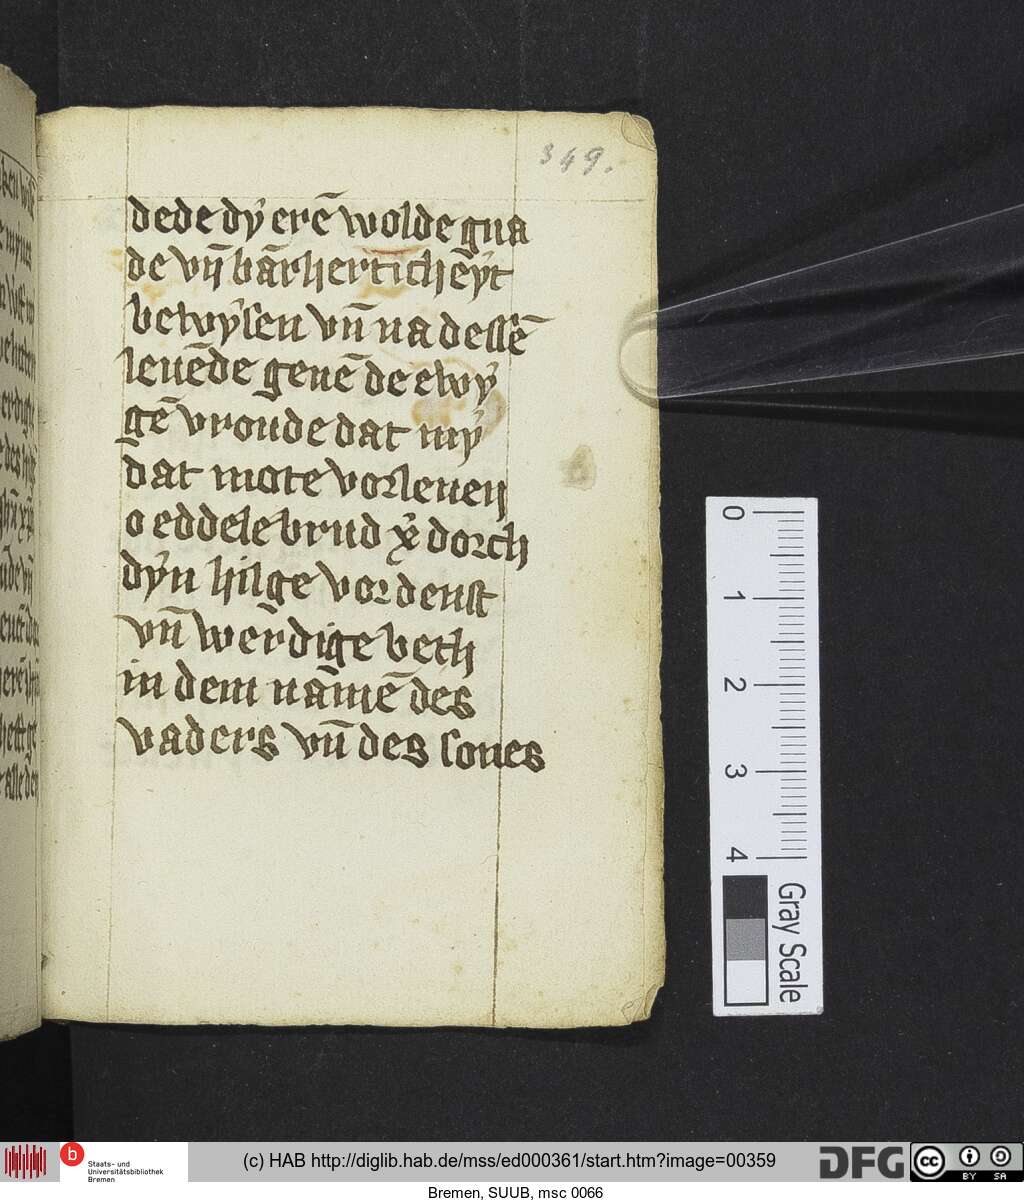 349.
dede dẏ erē wolde gna
de vn̄ bārherticheẏt
bewẏsen vn̄ na dessē
leuēde geuē de ewẏ
gē vroude dat mẏ
dat mote vorleuen
o eddele brud xp̄i dorch
dẏn hilge vordenst
vn̄ werdige beth
in dem namē des
vaders vn̄ des sones
0
1
2
3
4
Gray Scale
b
Staats- und
Universitätsbibliothek
Bremen
(c) HAB http://diglib.hab.de/mss/ed000361/start.htm?image=00359
DFG
cc
BY SA
Bremen, SUUB, msc 0066